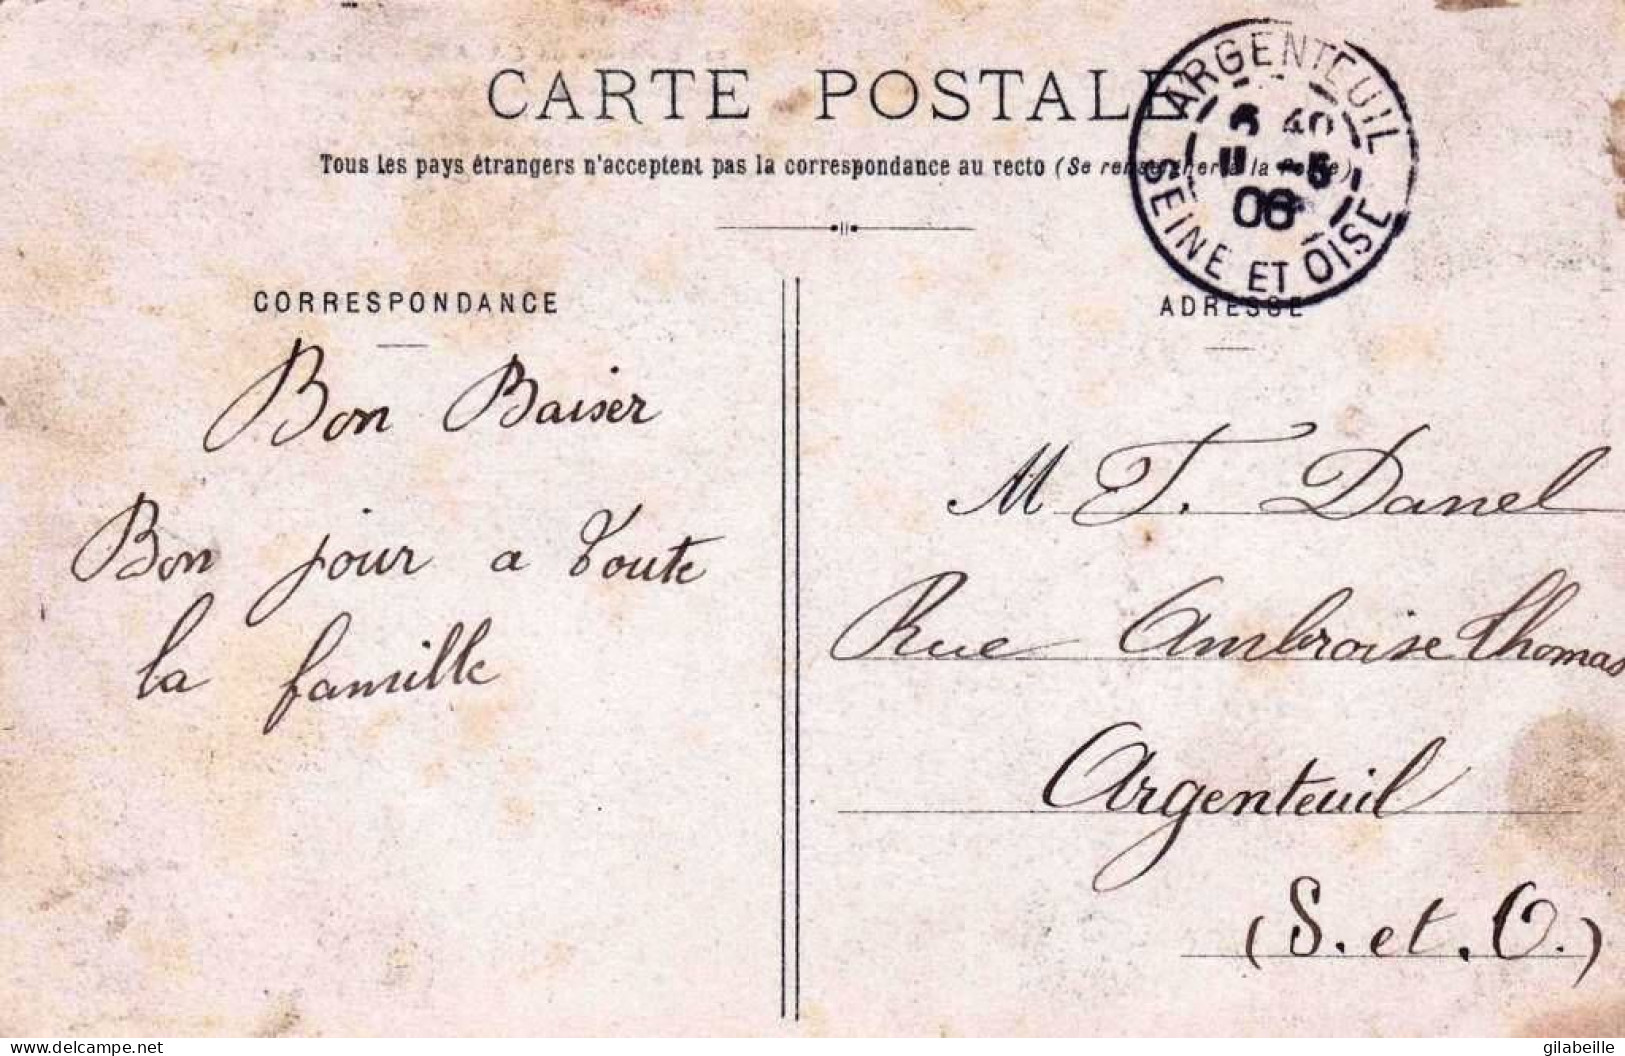 CARTE POSTALE
Tous les pays étrangers n'acceptent pas la correspondance au recto (Se renseigner à la Poste)
ARGENTEUIL
6 40
11 -5
06
SEINE ET OISE
CORRESPONDANCE
Bon Baiser
Bon jour a Toute
la famille
ADRESSE
M T. Danel
Rue Ambroise Thomas
Argenteuil
(S. et. O.)
delcampe.net
gilabeille